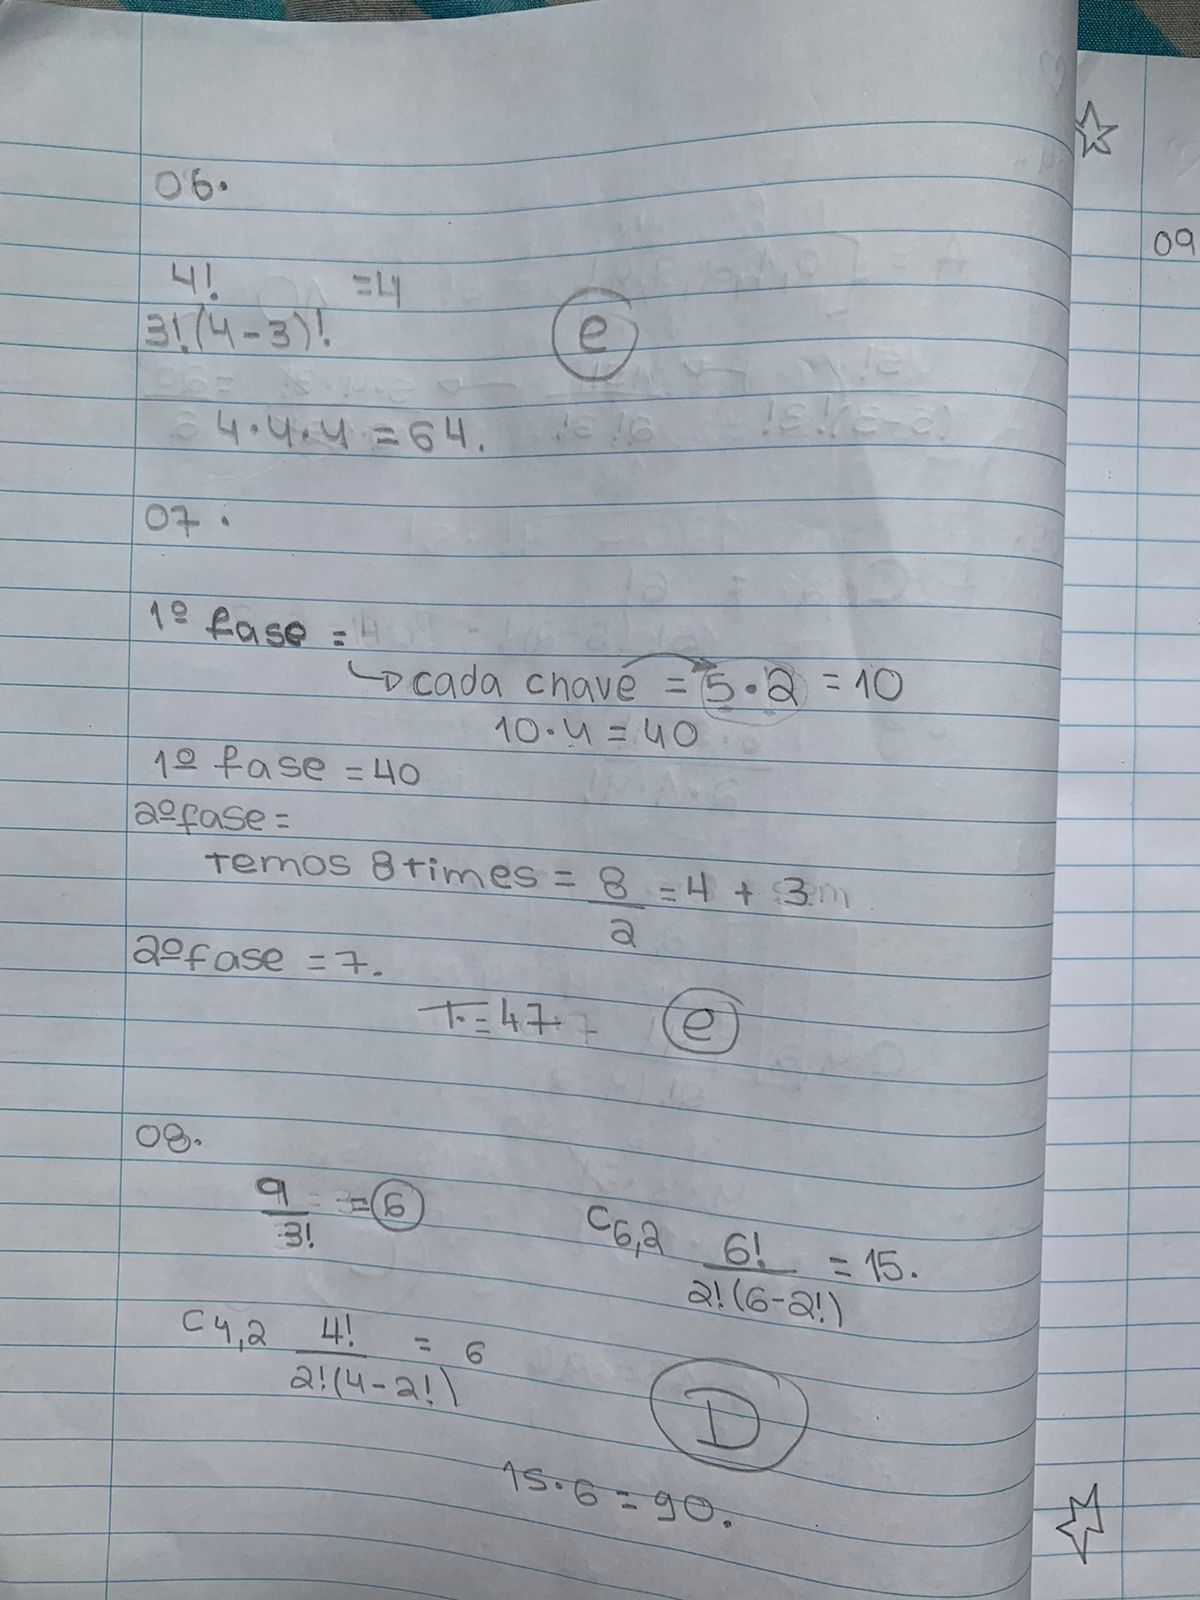 06.
4! =4
3!(4-3)!
e
4.4.4=64.
07.
1º fase =
↳ cada chave = 5.2 = 10
10.4=40
1º fase =40
2º fase =
temos 8 times = 8 = 4 + 3
2
2º fase = 7.
T.=47.
e
08.
9 = 6
3!
C6,2 6! = 15.
2!(6-2!)
C4,2 4! = 6
2!(4-2!)
D
15.6=90.
09